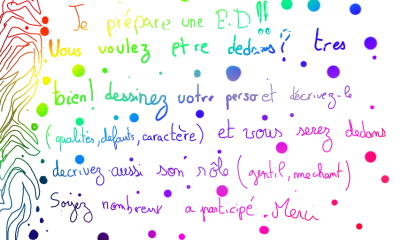 Je prépare une B.D!!
Vous voulez etre dedans? tres
bien! dessinez votre perso et décrivez-le
(qualités, defauts, caractère) et vous serez dedans
decrivez aussi son rôle (gentil, mechant)
Soyez nombreux a participé. Merci